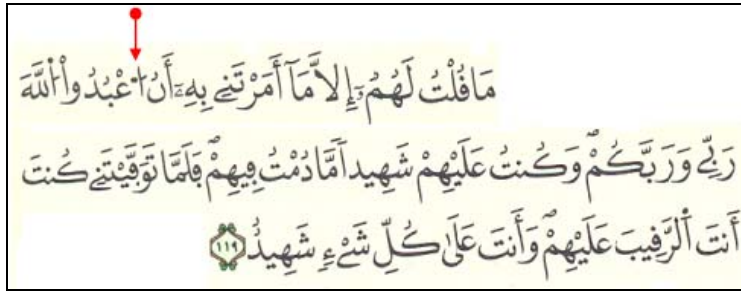 مَا قُلْتُ لَهُمُۥٓ إِلاَّ مَآ أَمَرْتَنِے بِهِۦٓ أَنُ اُ۟عْبُدُواْ اُ۬للَّهَ
رَبِّے وَرَبَّكُمْۖ وَكُنتُ عَلَيْهِمْ شَهِيداٗ مَّا دُمْتُ فِيهِمْۖ فَلَمَّا تَوَفَّيْتَنِے كُنتَ
أَنتَ اَ۬لرَّقِيبَ عَلَيْهِمْۖ وَأَنتَ عَلَىٰ كُلِّ شَےْءٖ شَهِيدٌۖ ١١٩